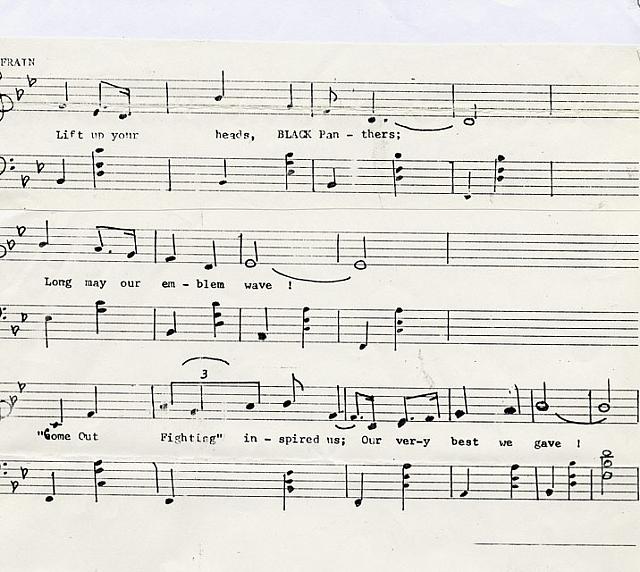 FRAIN
Lift up your heads, BLACK Pan - thers;
Long may our em - blem wave !
3
"Come Out Fighting" in - spired us; Our ver-y best we gave !